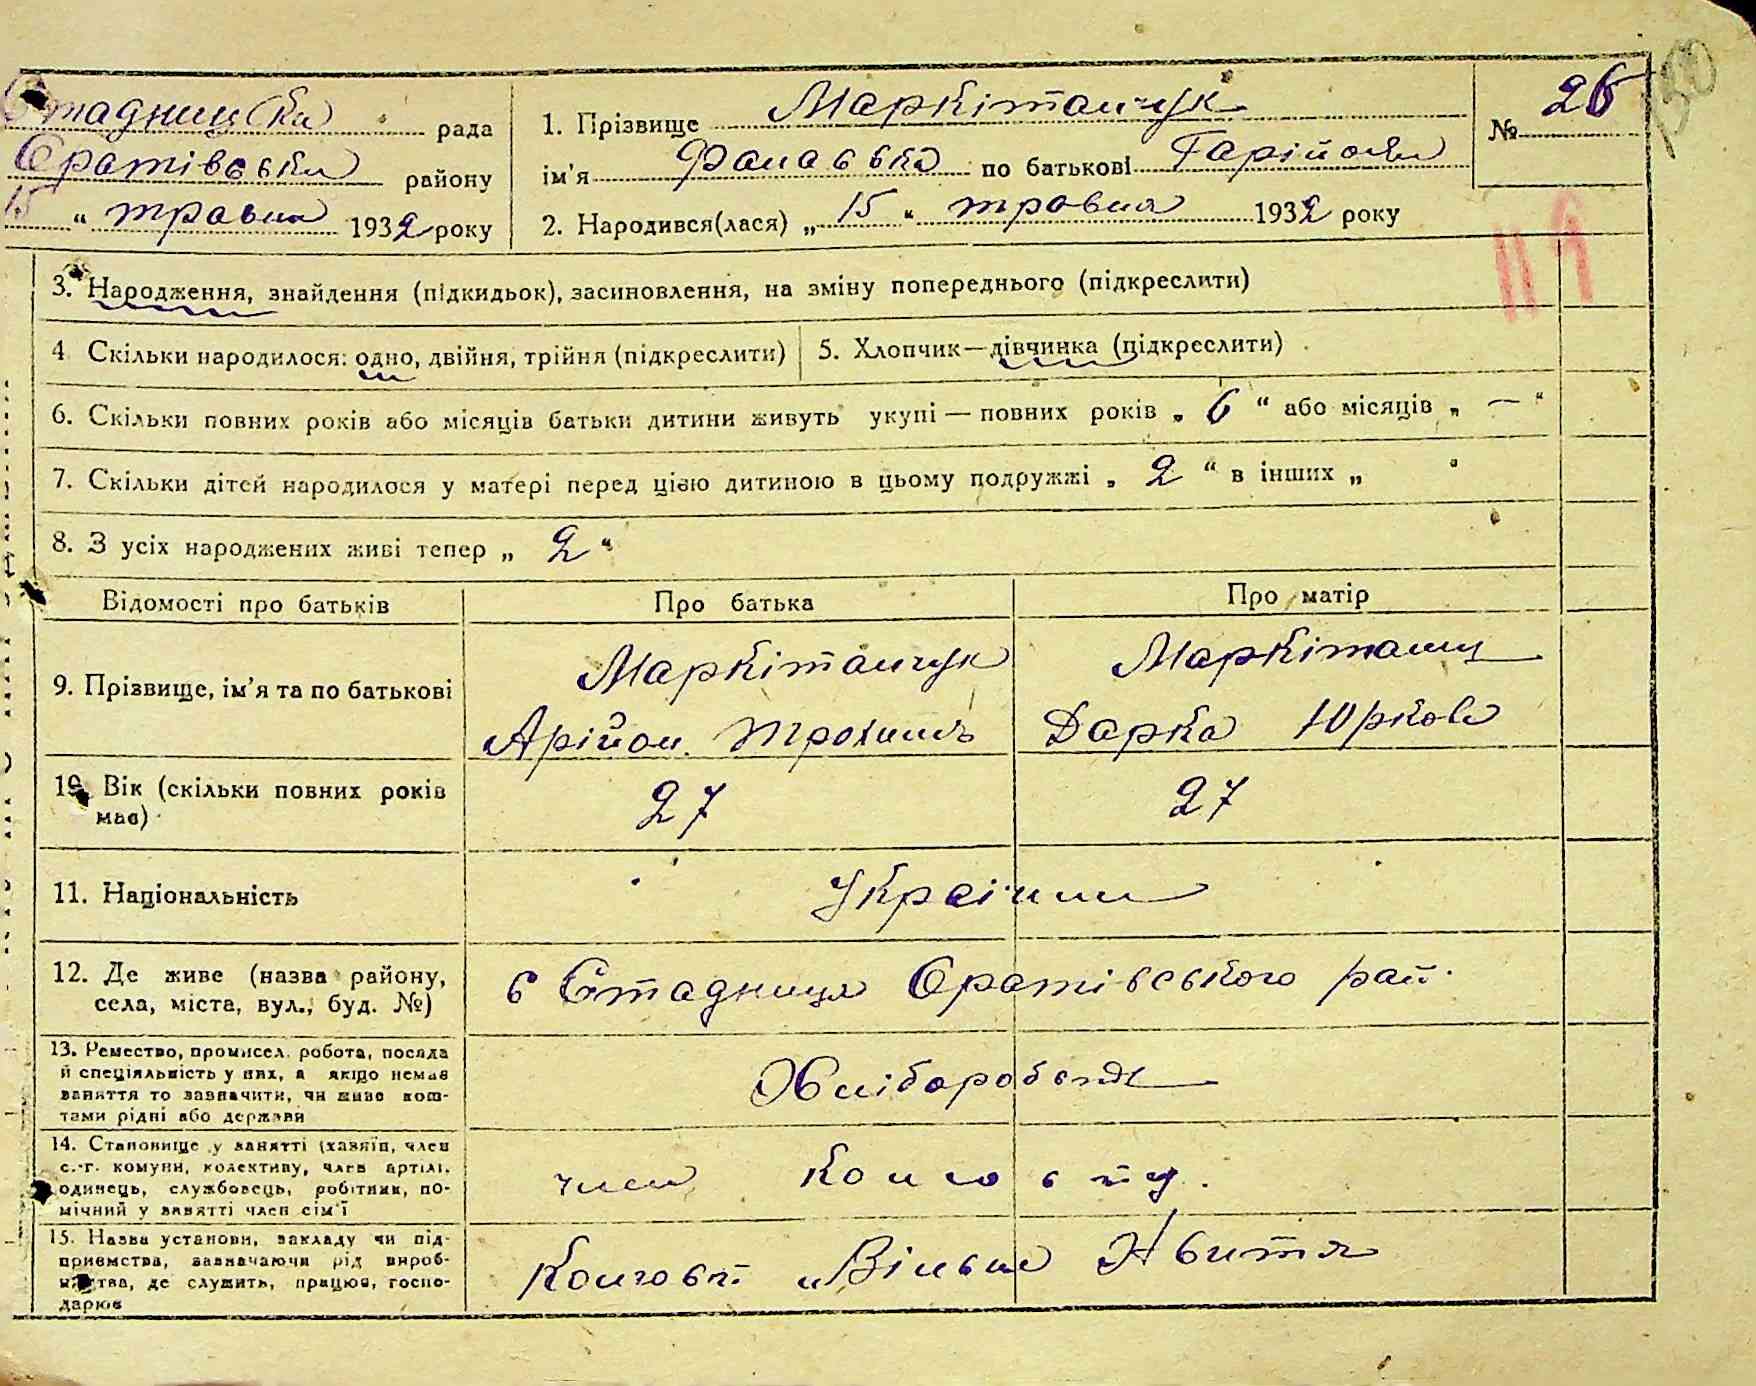 Стадницька рада
Оратівська району
15 " травня 1932 року
1. Прізвище Маркітанчук
ім'я по батькові
2. Народився(лася) „ 15 " травня 1932 року
№ 26
3. Народження, знайдення (підкидьок), засиновлення, на зміну попереднього (підкреслити)
4 Скільки народилося: одно, двійня, трійня (підкреслити)
5. Хлопчик—дівчинка (підкреслити)
6. Скільки повних років або місяців батьки дитини живуть укупі — повних років „ 6 " або місяців „ — "
7. Скільки дітей народилося у матері перед цією дитиною в цьому подружжі „ 2 " в інших „ "
8. З усіх народжених живі тепер „ 2 "
Відомості про батьків
Про батька
Про матір
9. Прізвище, ім'я та по батькові
Маркітанчук
Арійон
Маркітанч
Дарка Юрков
10. Вік (скільки повних років
має)
27
27
11. Національність
Україн
12. Де живе (назва району,
села, міста, вул., буд. №)
в Стадниця Оратівського рай.
13. Ремество, промисел, робота, посада
й спеціяльність у них, а якщо немає
заняття то зазначити, чи живе кош-
тами рідні або держави
Хліборобств
14. Становище у занятті (хазяїн, член
с.-г. комуни, колективу, член артілі,
одинець, службовець, робітник, по-
мічний у занятті член сім'ї
член колгоспу.
15. Назва установи, закладу чи під-
приємства, зазначаючи рід вироб-
ництва, де служить, працює, госпо-
дарює
Колгосп „Вільне Життя